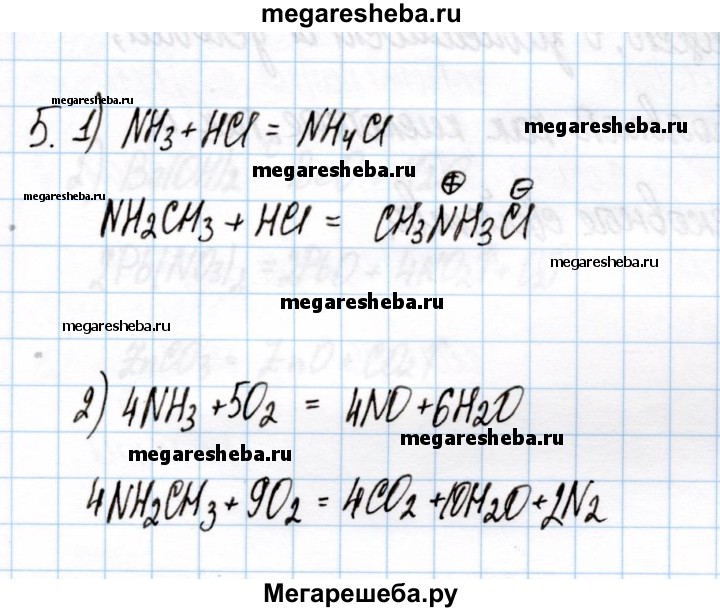 megaresheba.ru
megaresheba.ru
5. 1) NH3 + HCl = NH4Cl
megaresheba.ru
megaresheba.ru
megaresheba.ru
⊕ ⊖
NH2CH3 + HCl = CH3NH3Cl
megaresheba.ru
megaresheba.ru
megaresheba.ru
2) 4NH3 + 5O2 = 4NO + 6H2O
megaresheba.ru
megaresheba.ru
4NH2CH3 + 9O2 = 4CO2 + 10H2O + 2N2
Мегарешеба.ру